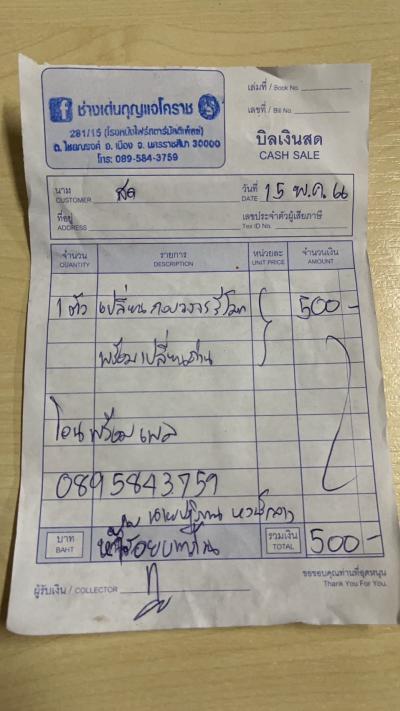 ช่างเด่นกุญแจโคราช
281/15 (โรงหนังไฟร์สตาร์มัลติเพล็ซ)
ต. ในเมือง อ. เมือง จ. นครราชสีมา 30000
โทร: 089-584-3759
เล่มที่ / Book No.
เลขที่ / Bill No.
บิลเงินสด
CASH SALE
นาม
CUSTOMER สด
วันที่
DATE 15 พ.ค
ที่อยู่
ADDRESS
เลขประจำตัวผู้เสียภาษี
Tax ID No.
จำนวน รายการ หน่วยละ จำนวนเงิน
QUANTITY DESCRIPTION UNIT PRICE AMOUNT
1 ตัว เปลี่ยน กรอบวงจร รีโมท 500-
พร้อมเปลี่ยนถ่าน
โอน พร้อม เพล
0895843759
บาท
BAHT ห้าร้อยบาทถ้วน
รวมเงิน
TOTAL 500-
ผู้รับเงิน / COLLECTOR
ขอขอบคุณท่านที่อุดหนุน
Thank You For You.